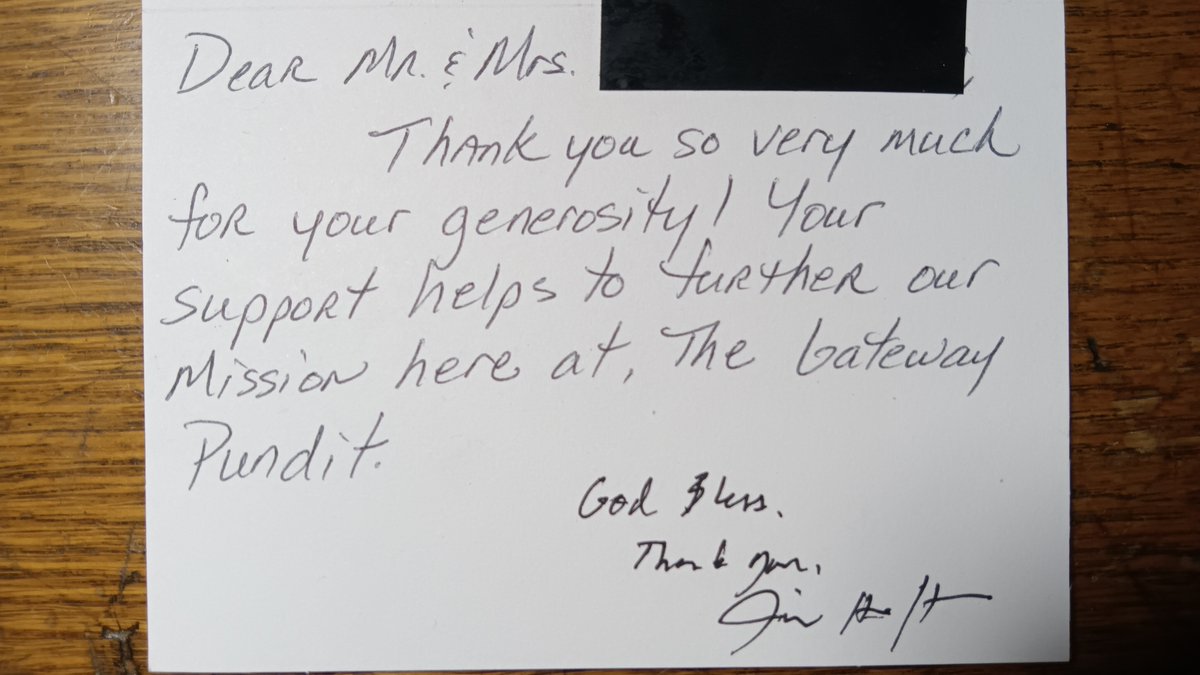 Dear Mr. & Mrs.
Thank you so very much
for your generosity! Your
support helps to further our
Mission here at, The Gateway
Pundit.
God Bless.
Thank you,
Jim Hoft